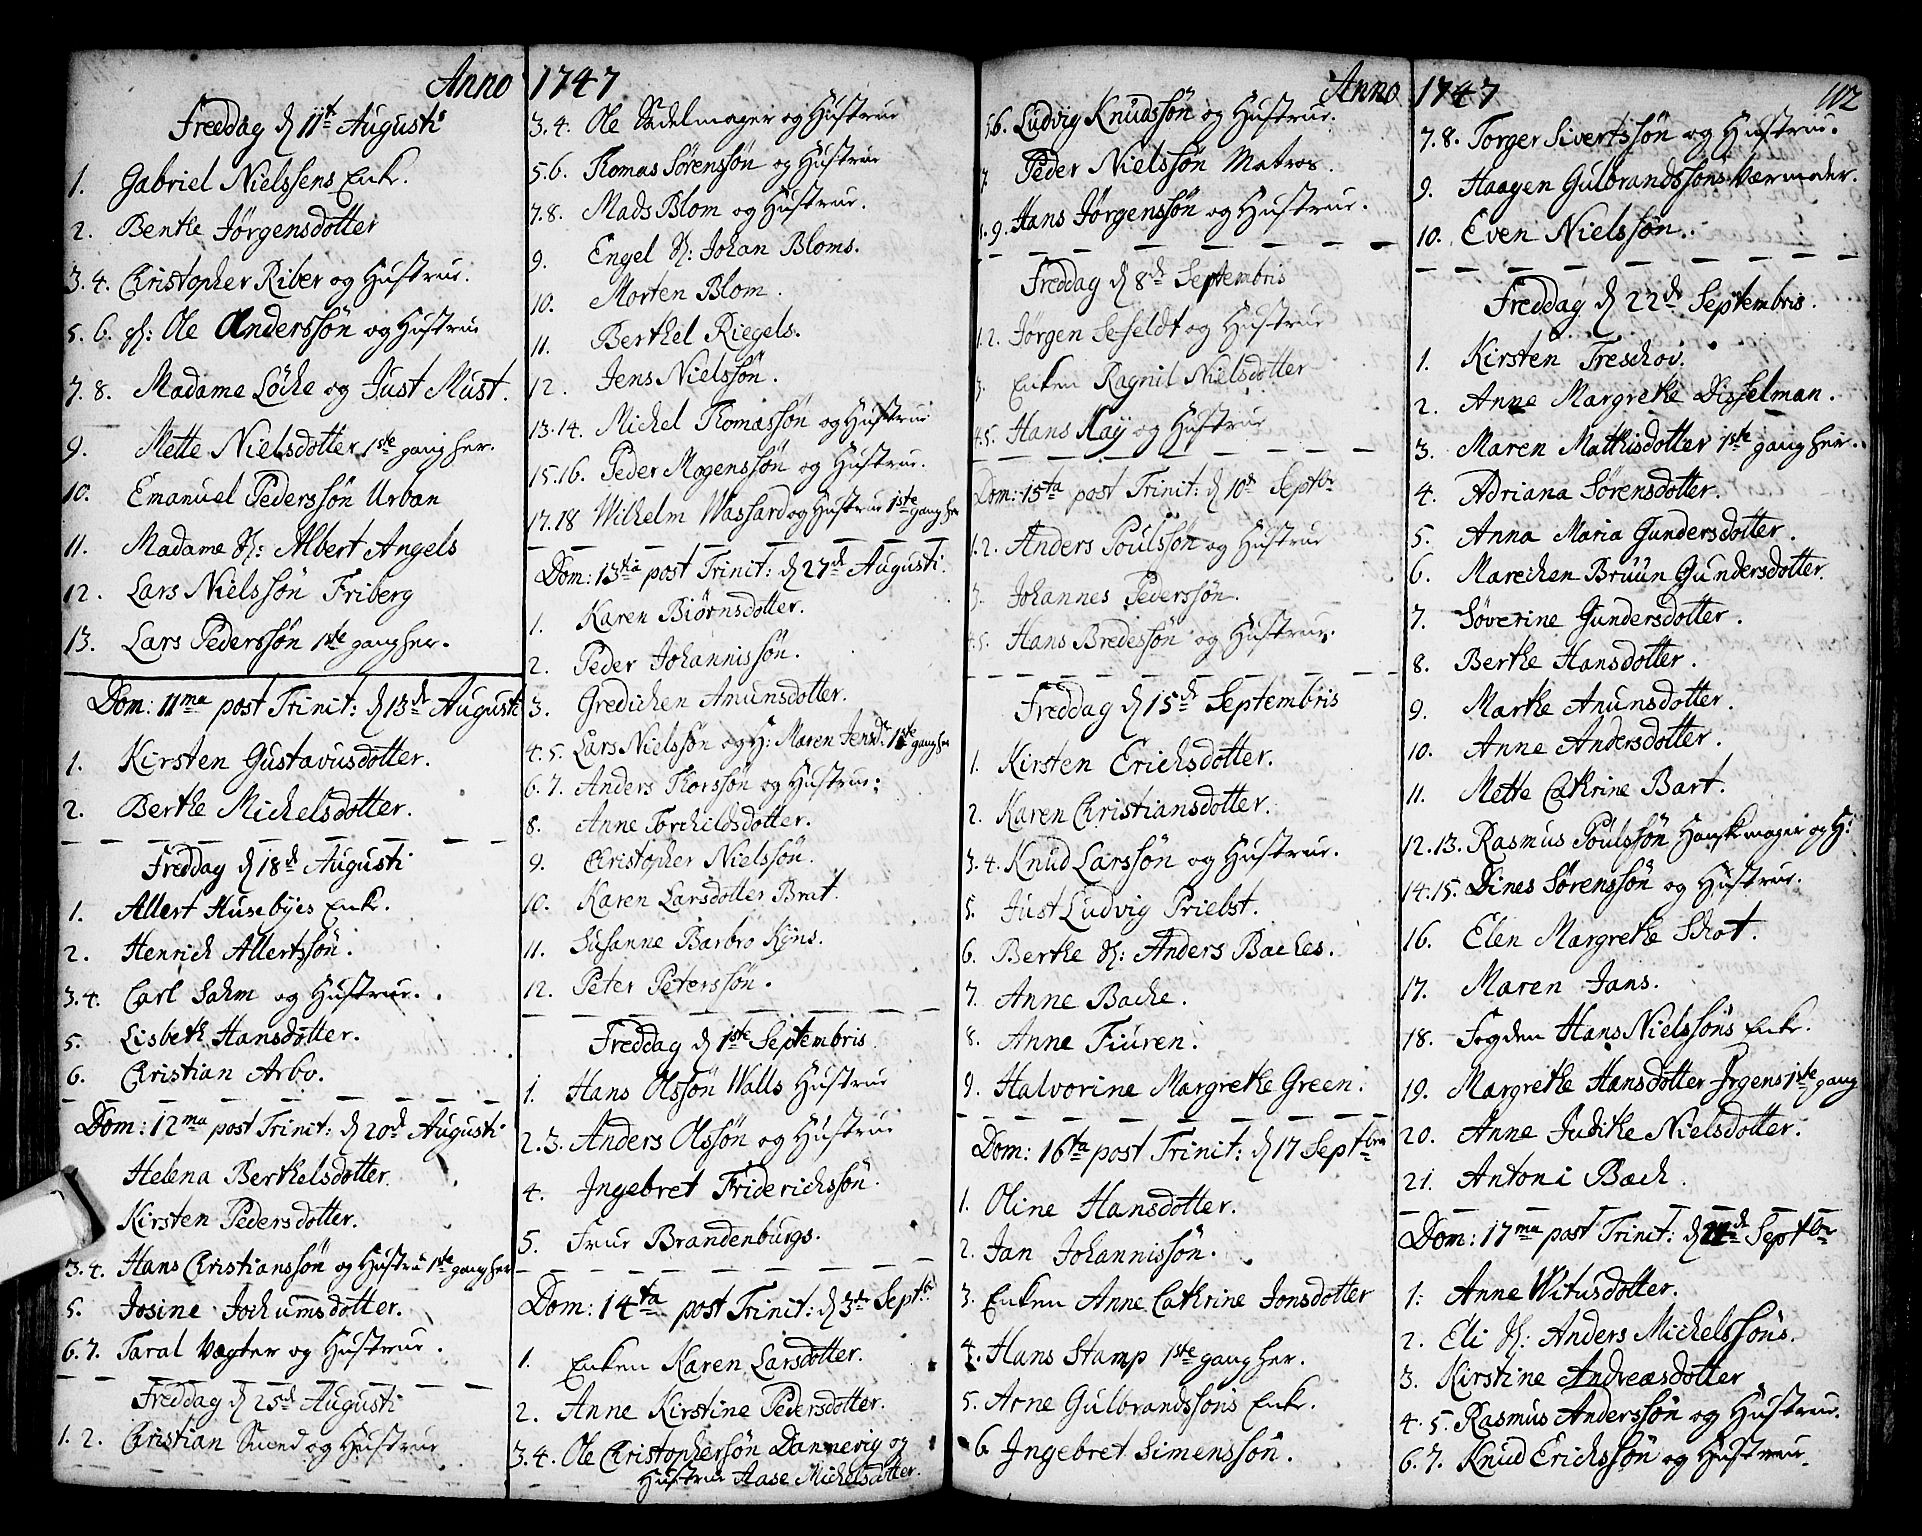 Anno 1747
Freddag d 11te Augusti
1. Gabriel Nielssens Enke.
2. Benthe Jörgensdotter
3. 4. Christopher Riber og Hustrue.
5. 6. Hr: Ole Anderssön og Hustrue
7. 8. Madame Löche og Just Must.
9. Mette Nielsdotter 1ste gang her.
10. Emanuel Pederssön Urban
11. Madame Sl: Albert Angels
12. Lars Nielssön Friberg
13. Lars Pederssön 1ste gang her.
Dom: 11ma post Trinit: d 13de Augusti
1. Kirsten Gustavusdotter.
2. Berthe Michelsdotter.
Freddag d 18de Augusti
1. Allert Husebyes Enke.
2. Henrich Allertssön.
3. 4. Carl Sahm og Hustrue.
5. Lisbeth Hansdotter.
6. Christian Arbo.
Dom: 12ma post Trinit: d 20de Augusti
Helena Berthelsdotter.
Kirsten Pedersdotter.
3. 4. Hans Christianssön og Hustru 1ste gang her
5. Josine Jochumsdotter.
6. 7. Taral Vægter og Hustrue.
Freddag d 25de Augusti
1. 2. Christian Svend og Hustrue
3. 4. Ole Sadelmager og Hustrue
5. 6. Thomas Sörenssön og Hustrue
7. 8. Mads Blom og Hustrue.
9. Engel Sl: Johan Bloms.
10. Morten Blom.
11. Berthel Riegels.
12. Jens Nielssön.
13. 14. Michel Thomassön og Hustrue
15. 16. Peder Mogenssön og Hustrue.
17. 18 Wilhelm Wassard og Hustrue 1ste gang her
Dom: 13tia post Trinit: d 27de Augusti.
1. Karen Biörnsdotter.
2. Peder Johannissön.
3. Gredichen Anunsdotter.
4. 5. Lars Nielssön og H: Maren Jensd: 1ste gang her
6. 7. Anders Thorssön og Hustrue:
8. Anne Torchildsdotter.
9. Christopher Nielssön.
10. Karen Larsdotter Brat.
11. Susanne Barbro Kyns.
12. Peter Peterssön.
Freddag d 1ste Septembris
1. Hans Olssön Walls Hustrue
2. 3. Anders Olssön og Hustrue
4. Ingebret Friderichssön.
5. Frue Brandenburgs.
Dom: 14ta post Trinit: d 3de Septbr
1. Enken Karen Larsdotter.
2. Anne Kirstine Pedersdotter.
3. 4. Ole Christophersön Dannevig og
Hustrue Aase Michelsdotter.
Anno 1747 112
5 6. Ludvig Knudssön og Hustrue.
7. Peder Nielssön Matros.
8. 9. Hans Jörgenssön og Hustrue.
Freddag d 8de Septembris
1. 2. Jörgen Sefeldt og Hustrue
3. Enken Ragnil Nielsdotter
4. 5. Hans May og Hustrue
Dom: 15ta post Trinit: d 10de Septbr
1. 2. Anders Poulssön og Hustrue
3. Johannes Pederssön.
4. 5. Hans Bredessön og Hustrue.
Freddag d 15de Septembris
1. Kirsten Erichsdotter.
2. Karen Christiansdotter.
3. 4. Knud Larssön og Hustrue.
5. Just Ludvig Priebst.
6. Berthe Sl: Anders Baches.
7. Anne Bache.
8. Anne Fiuren.
9. Halvorine Margrethe Green.
Dom: 16ta post Trinit: d 17 Septbris
1. Oline Hansdotter.
2. Jan Johannissön.
3. Enken Anne Cathrine Jonsdotter
4. Hans Stamp 1ste gang her.
5. Arne Gulbrandssöns Enke.
6 Ingebret Simenssön.
7. 8. Torger Sivertssön og Hustrue.
9. Haagen Gulbrandssöns Værmoder.
10. Even Nielssön.
Freddag d 22de Septembris.
1. Kirsten Treschov.
2. Anne Margrethe Disselman.
3. Maren Mathisdotter 1ste gang her.
4. Adriana Sörensdotter.
5. Anna Maria Gundersdotter.
6. Marechen Bruun Gundersdotter.
7. Söverine Gundersdotter.
8. Berthe Hansdotter.
9. Marthe Anunsdotter.
10. Anne Andersdotter.
11. Mette Cathrine Bart.
12. 13. Rasmus Poulssön Handskmager og H:
14. 15. Dines Sörenssön og Hustrue.
16. Elen Margrethe Schot.
17. Maren Jans.
18. Fogden Hans Nielssöns Enke.
19. Margrethe Hansdotter Irgens 1ste gang
20. Anne Judithe Nielsdotter.
21. Antoni Bach.
Dom: 17ma post Trinit: d 24de Septbr
1. Anne Witusdotter.
2. Eli Sl: Anders Michelssöns.
3. Kirstine Andreasdotter
4. 5. Rasmus Anderssön og Hustrue.
6. 7. Knud Erichssön og Hustrue.